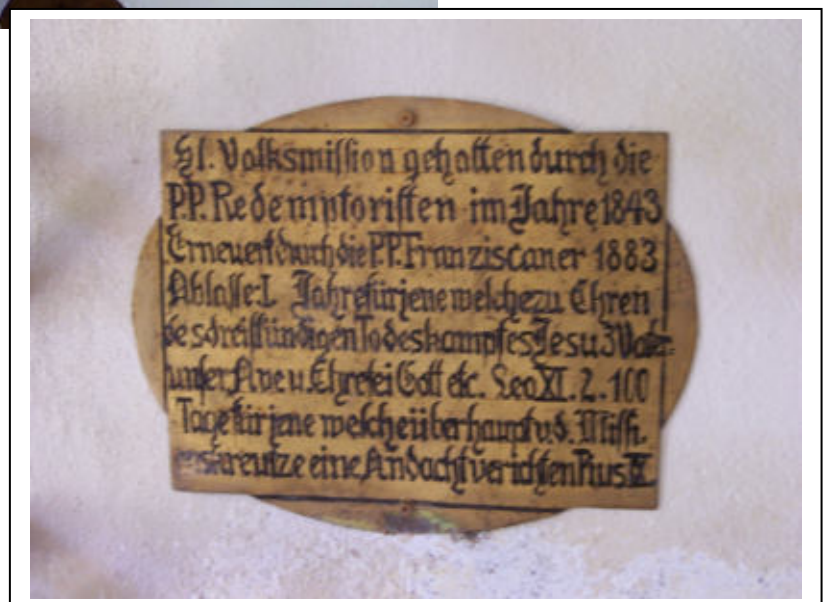 Hl. Volksmission gehalten durch die
P.P. Redemptoristen im Jahre 1843
Erneuert durch die P.P. Franziscaner 1883
Ablässe: 1. Jahre für jene welche zu Ehren
des dreistündigen Todeskampfes Jesu 3 Vat=
unser Ave u. Ehre sei Gott etc. Leo XI. 2. 100
Tage für jene welche überhaupt v. d. Missi.
onskreutze eine Andacht verichten Pius